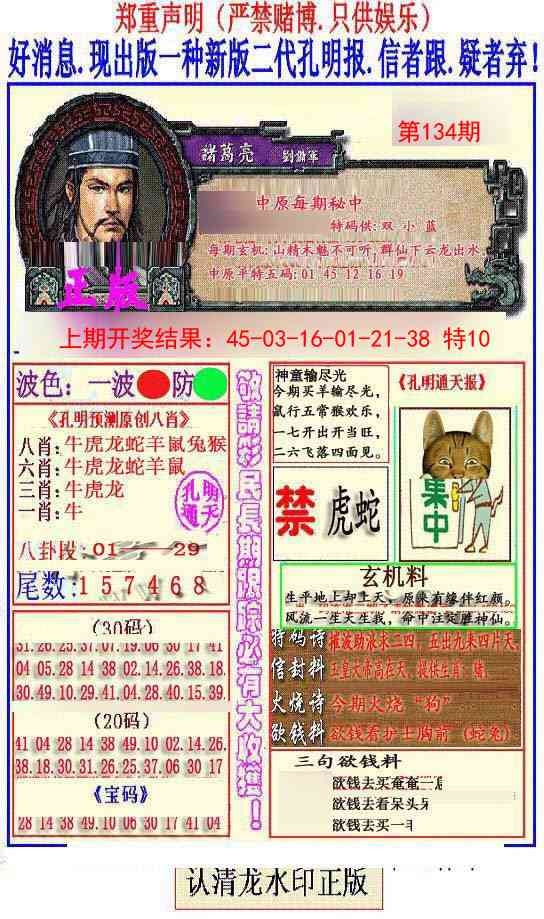 郑重声明（严禁赌博.只供娱乐）
好消息.现出版一种新版二代孔明报.信者跟.疑者弃!
第134期
諸葛亮
中原每期秘中
特码供:双 小 蓝
每期玄机:山精木魅不可听,群仙下云龙出水
中原平特五码:01 45 12 16 19
正版
上期开奖结果: 45-03-16-01-21-38 特10
波色: 一波 防
《孔明预测原创八肖》
八肖:牛虎龙蛇羊鼠兔猴
六肖:牛虎龙蛇羊鼠
三肖:牛虎龙
一肖:牛
孔明
通天
八卦段:01——29
尾数:157468
(30码)
31.26.25.37.07.19.06 30 17 41
04 05.28 14 38 02.14.26.38.18
30.49.10.29 41.04 28.40 15.39
(20码)
41 04 28 14 38 49.10 02.14.26.
38.18 30.31.26 25.37.06 30 17
《宝码》
28 14 38 49.10 06 30 17 41 04
敬請彩民長期跟踪必有大收獲!
神童输尽光
今期买羊输尽光，
鼠行五常猴欢乐，
一七开出开当旺，
二六飞落四面见。
《孔明通天报》
禁
虎蛇
集中
玄机料
生平地上却上天，原来有缘伴红颜。
风流一生天生我，命中注定胜神仙。
特码诗
推波助浪求二四，五出九来四片天
信封料
玉皇大帝高在天，提供生肖：猪
火烧诗
今期火烧“狗”
欲钱料
欲钱看护士胸前（蛇兔）
三句欲钱料
欲钱去买奄奄一
欲钱去看呆头
欲钱去买一
认清龙水印正版